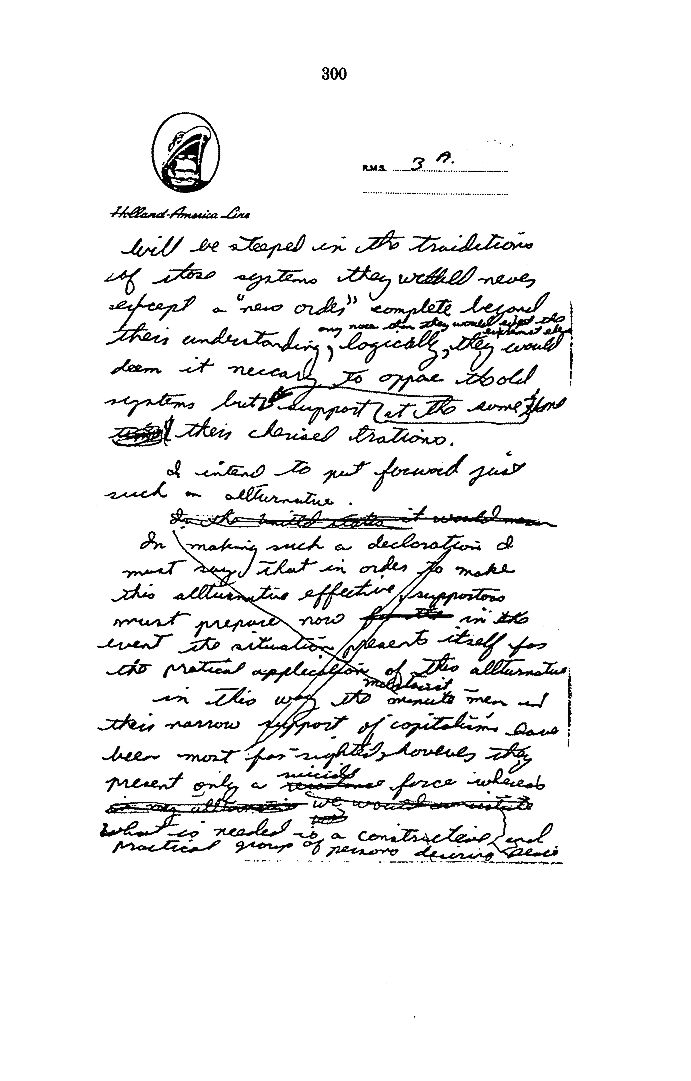 300
R.M.S. 3 A.
Holland-America Line
Will be steeped in the traiditions
of those systems they would never
except a "new order" complete beyond
any more than they would
their understanding, logically, they would
deem it neccary to oppose the old
systems but support at the same time
their cherised trations.
I intend to put forward just
such an allturnative.
In the United States it would mean
In making such a declaration I
must say that in order to make
this allturnative effective supportors
must prepare now in the
event the situation presents itself for
the pratical application of this allturnative
in this way the minute men and
their narrow support of capitalism have
been most far-sighted, however they
present only a suicide force whereas
we would
what is needed is a constructive and
practical group of persons desiring peace